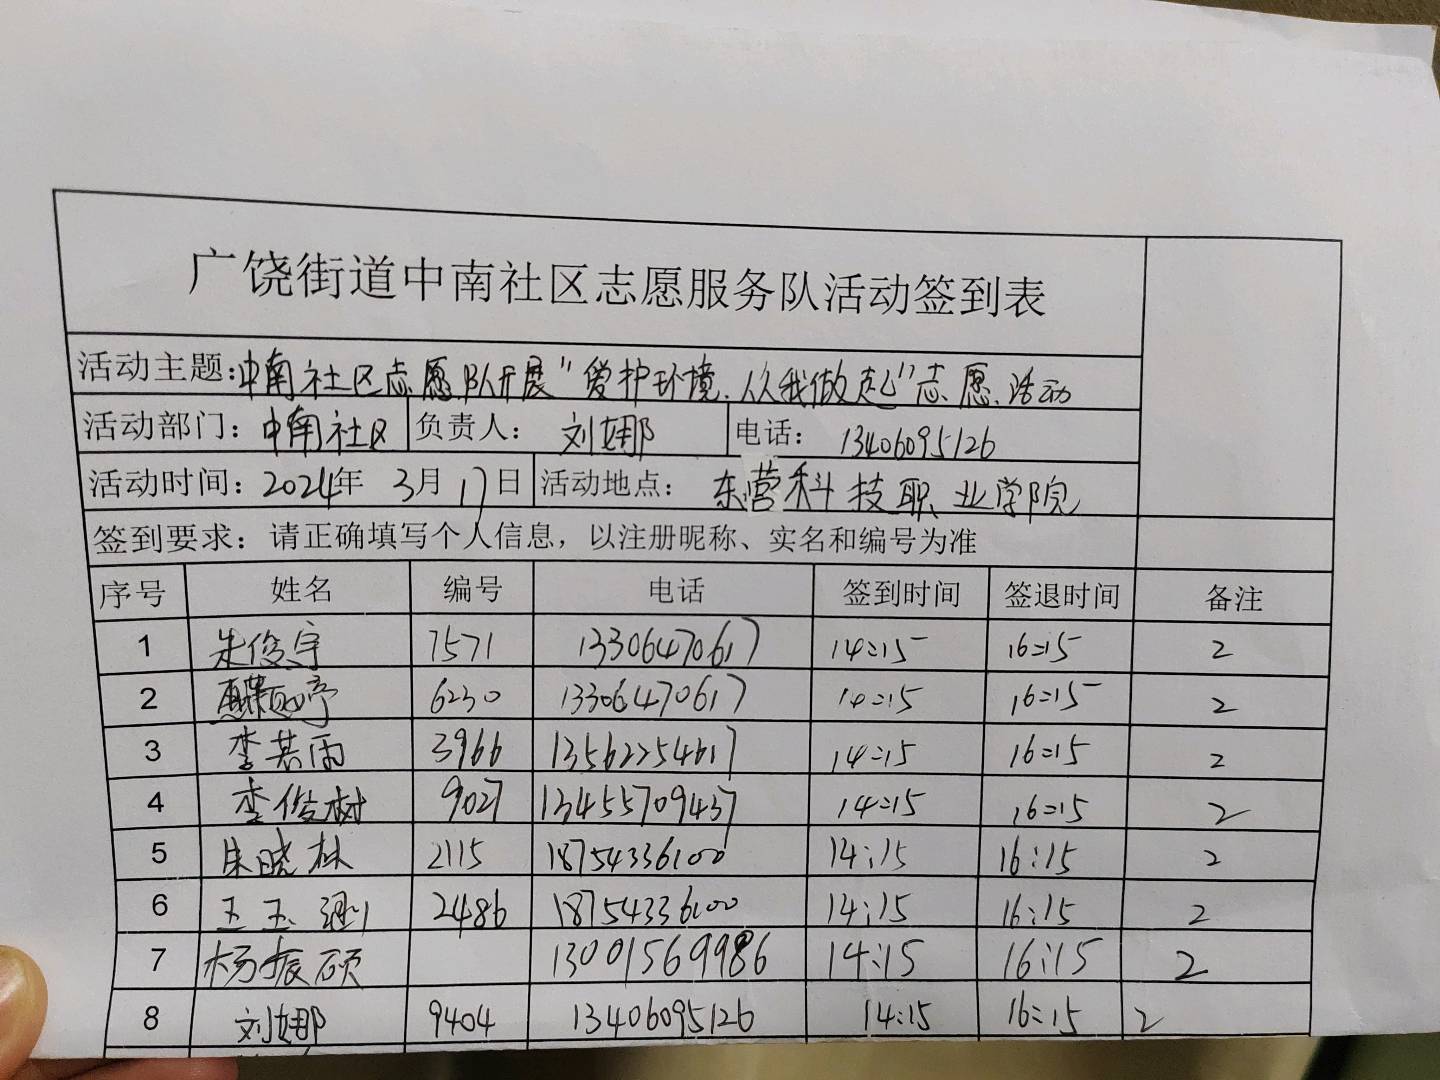 广饶街道中南社区志愿服务队活动签到表
活动主题:中南社区志愿队开展"爱护环境.从我做起"志愿活动
活动部门: 中南社区 负责人: 刘娜 电话: 13406095126
活动时间: 2024年 3月 17日 活动地点: 东营科技职业学院
签到要求: 请正确填写个人信息, 以注册昵称、实名和编号为准
序号 姓名 编号 电话 签到时间 签退时间 备注
1 朱俊宇 7571 13306470617 14:15 16:15 2
2 6230 13306470617 14:15 16:15 2
3 李若雨 3966 13562254617 14:15 16:15 2
4 李俊树 9027 13455709437 14:15 16:15 2
5 朱晓林 2115 18754336100 14:15 16:15 2
6 王玉 2486 18754336100 14:15 16:15 2
7 杨振硕 13001569986 14:15 16:15 2
8 刘娜 9404 13406095126 14:15 16:15 2